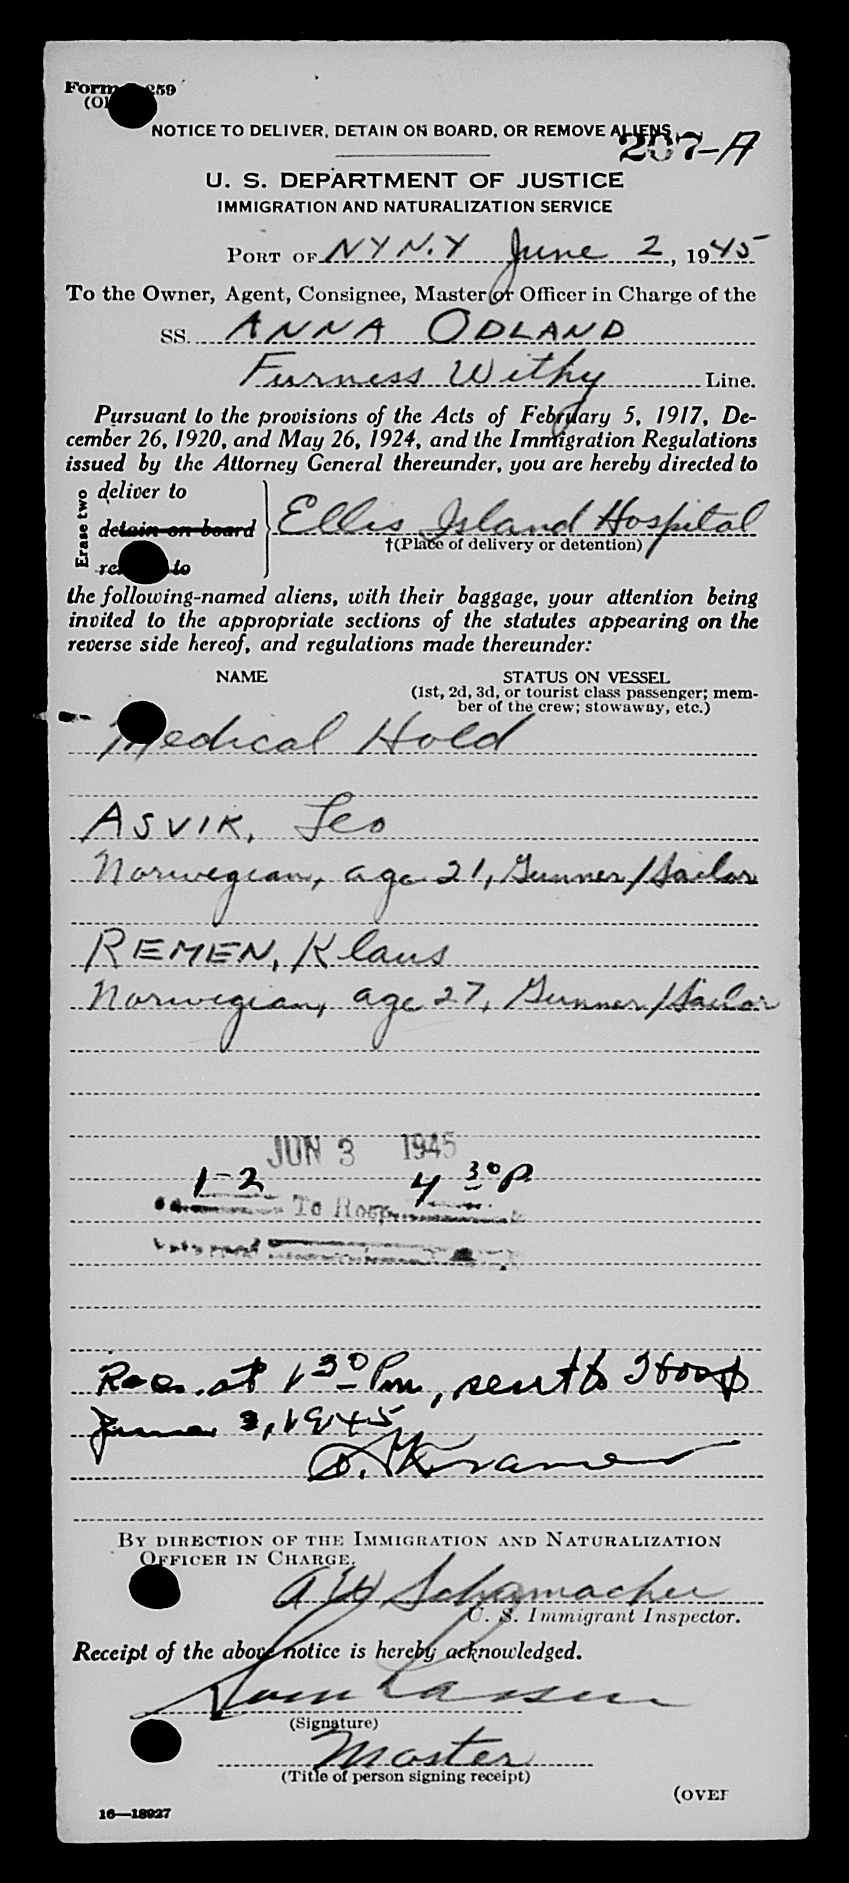 Form 259
NOTICE TO DELIVER, DETAIN ON BOARD, OR REMOVE ALIENS
207-A
U. S. DEPARTMENT OF JUSTICE
IMMIGRATION AND NATURALIZATION SERVICE
PORT OF NY N.Y June 2, 1945
To the Owner, Agent, Consignee, Master or Officer in Charge of the
SS. ANNA ODLAND
Furness Withy Line.
Pursuant to the provisions of the Acts of February 5, 1917, De-
cember 26, 1920, and May 26, 1924, and the Immigration Regulations
issued by the Attorney General thereunder, you are hereby directed to
Erase two
deliver to
detain on board
Ellis Island Hospital
†(Place of delivery or detention)
to
the following-named aliens, with their baggage, your attention being
invited to the appropriate sections of the statutes appearing on the
reverse side hereof, and regulations made thereunder:
NAME STATUS ON VESSEL
(1st, 2d, 3d, or tourist class passenger; mem-
ber of the crew; stowaway, etc.)
Medical Hold
ASVIK, Leo
Norwegian, age 21, Gunner/Sailor
REMEN, Klaus
Norwegian, age 27, Gunner/Sailor
JUN 3 1945
1-2 4 30 P
To Hosp
Rec. at 1 30 Pm, sent to Hosp
June 3, 1945
Kramer
BY DIRECTION OF THE IMMIGRATION AND NATURALIZATION
OFFICER IN CHARGE.
A W Schumacher
U. S. Immigrant Inspector.
Receipt of the above notice is hereby acknowledged.
Larsen
(Signature)
Master
(Title of person signing receipt)
(OVER
16—18927